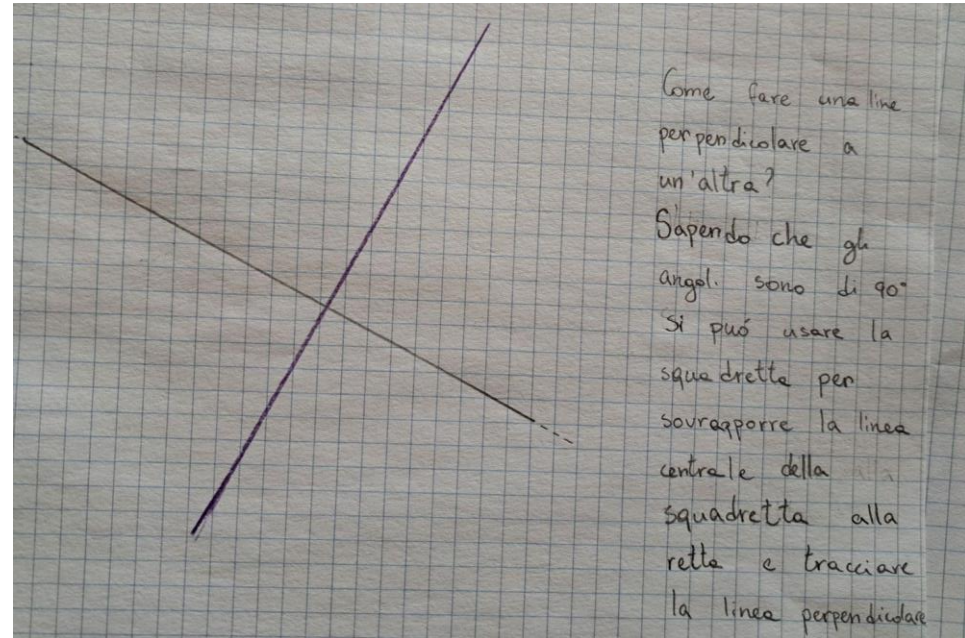 Come fare una line
perpendicolare a
un'altra?
Sapendo che gli
angoli sono di 90°
si puó usare la
squadretta per
sovrapporre la linea
centrale della alla
squadretta alla
retta e tracciare
la linea perpendicolare